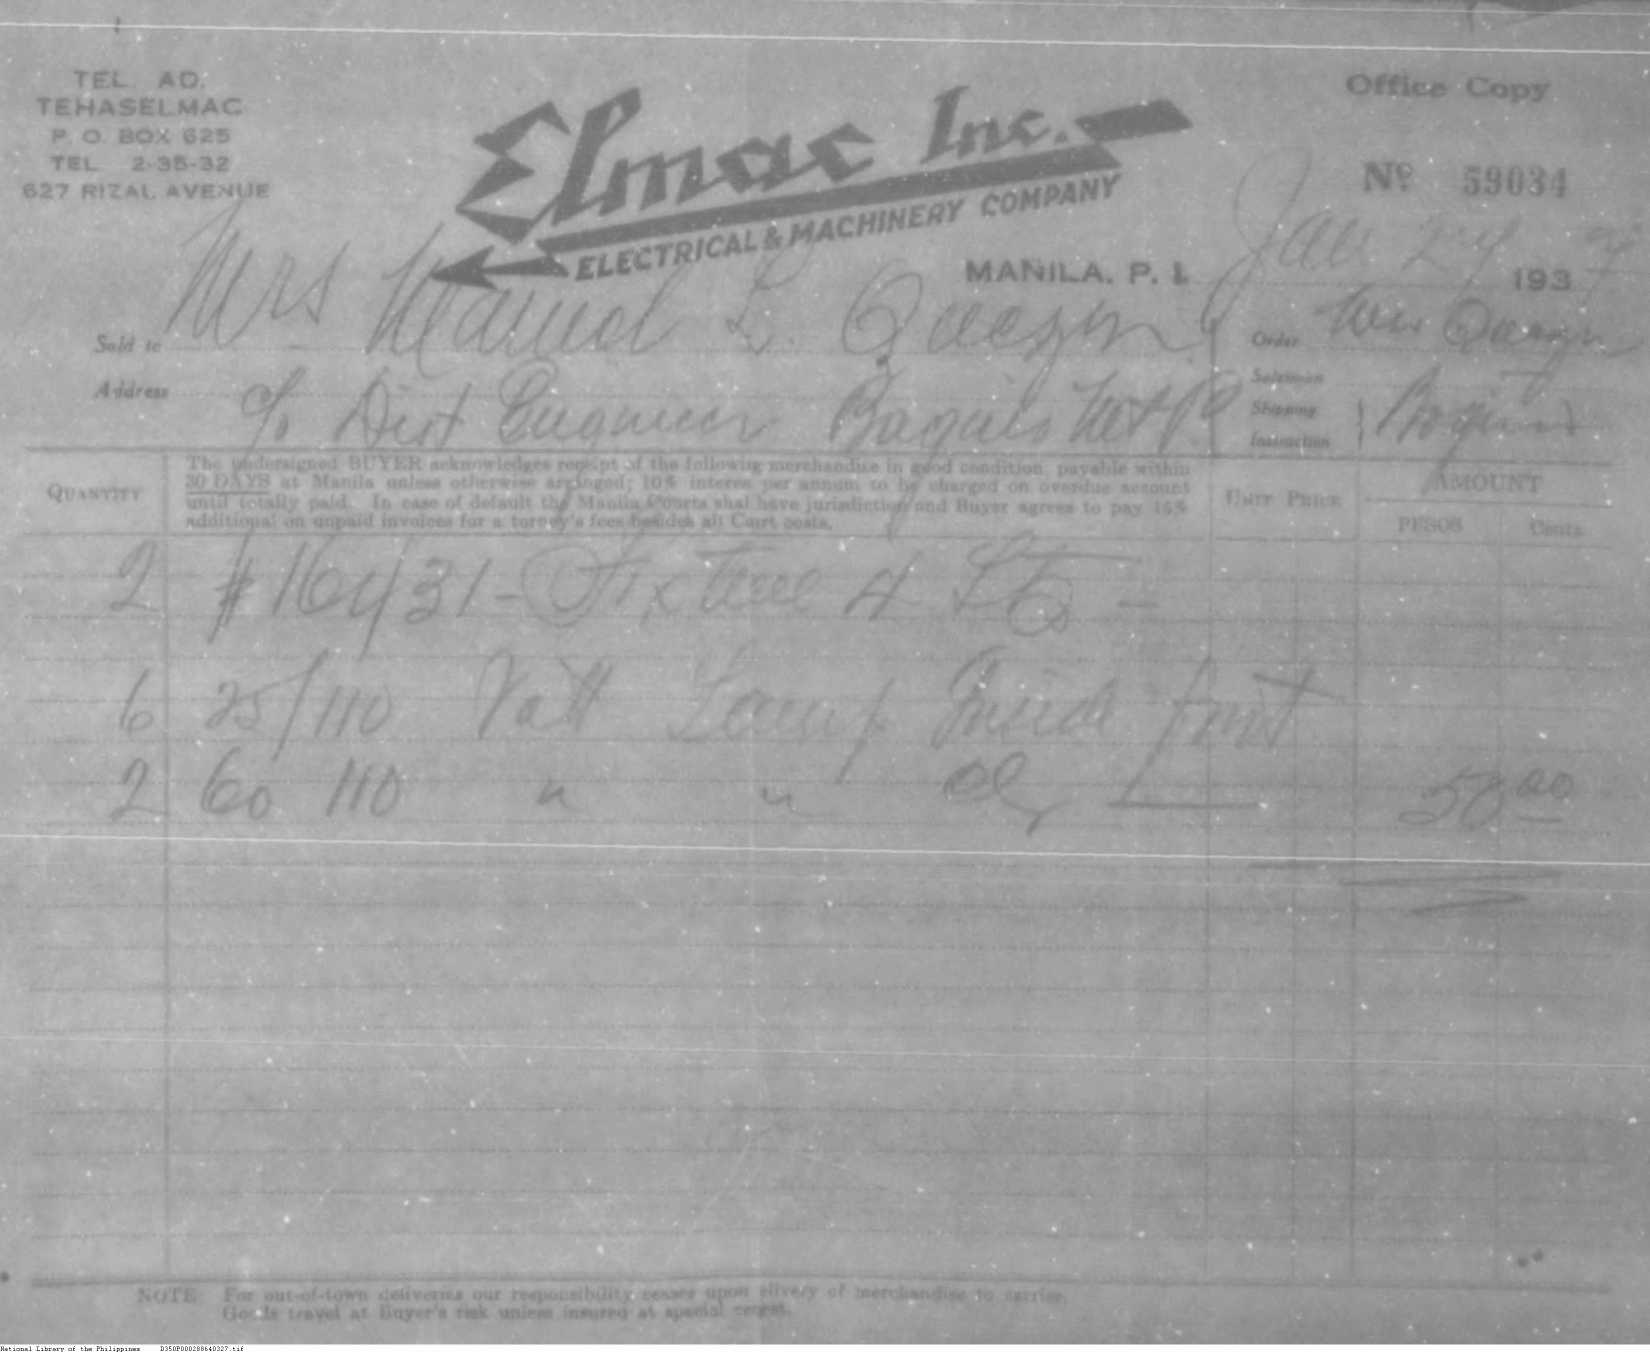 TEL. AD.
TEHASELMAC
P. O. BOX 625
TEL 2-35-32
627 RIZAL AVENUE
Elmac Inc.
ELECTRICAL & MACHINERY COMPANY
Office Copy
Nº 59034
MANILA. P. I. Jan 27 193
Sold to Mrs Manuel L. Quezon
Address c/o Dist Engineer Baguio Mt P
Order Mrs Quezon
Salesman
Shipping Instruction } Baguio
QUANTITY
The undersigned BUYER acknowledges receipt of the following merchandise in good condition, payable within
30 DAYS at Manila unless otherwise arranged; 10% interes per annum to be charged on overdue account
until totally paid. In case of default the Manila Courts shal have jurisdiction and Buyer agrees to pay 15%
additional on unpaid invoices for a torney's fees besides all Court costs.
UNIT PRICE
AMOUNT
PESOS Cents
2 # 16431 - Fixture 4 Lts -
6 25/110 Vatt Lamp Inside frost
2 60 110 " " 50 00
NOTE: For out-of-town deliveries our responsibility ceases upon elivery of merchandise to carrier.
Goods travel at Buyer's risk unless insured at special reqest.
National Library of the Philippines D350P000288640327.tif